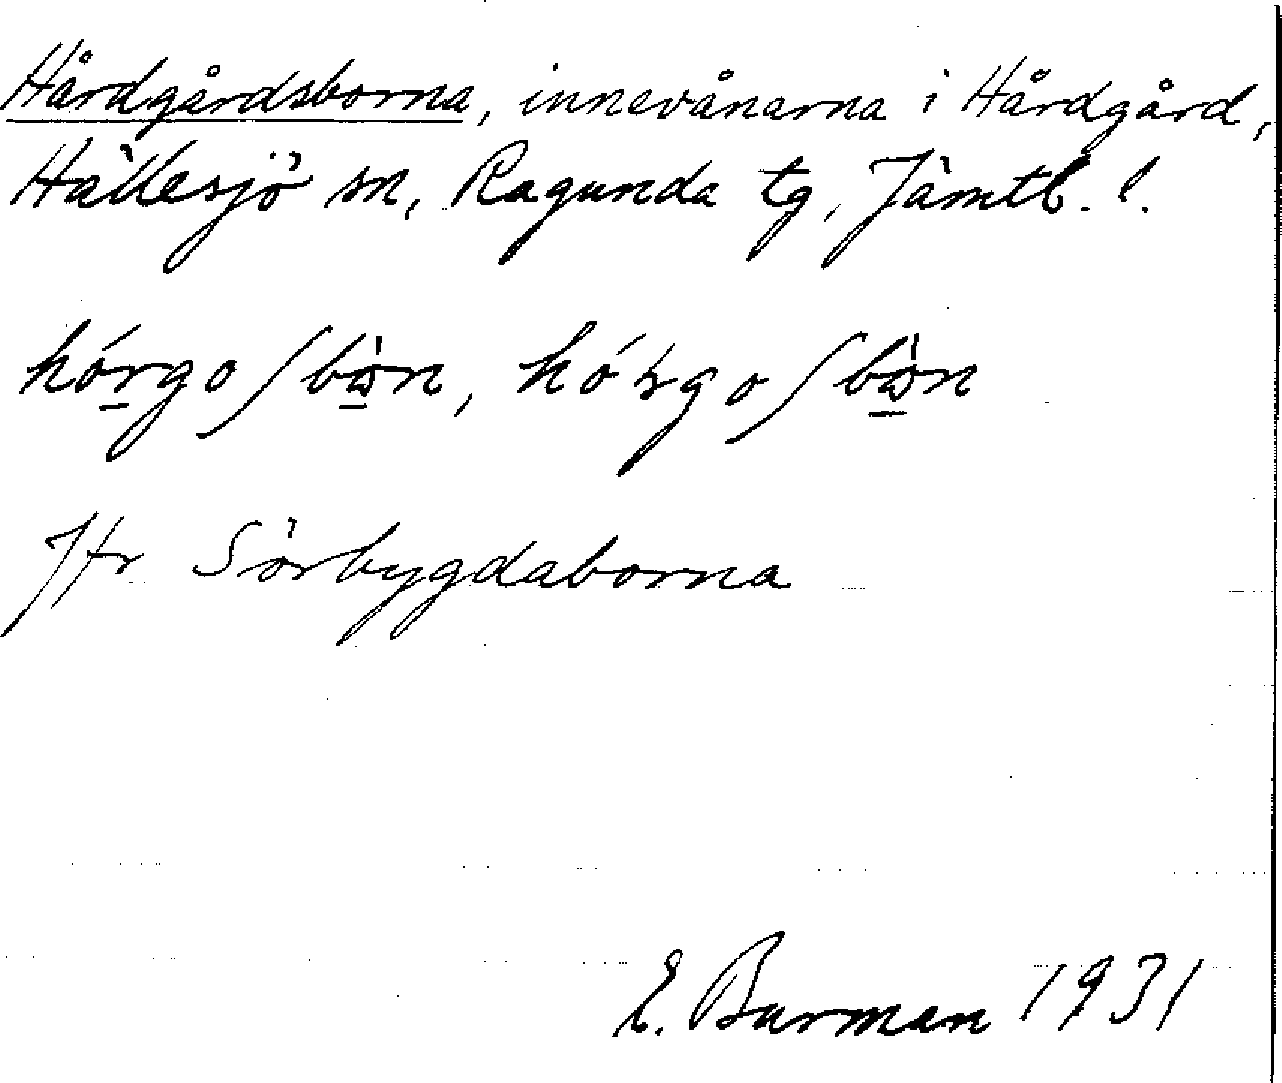 Hårdgårdsborna, innevånarna i Hårdgård,
Hällesjö sn, Ragunda tg, Jämtl. l.
Jfr Sörbygdaborna
E. Burman 1931